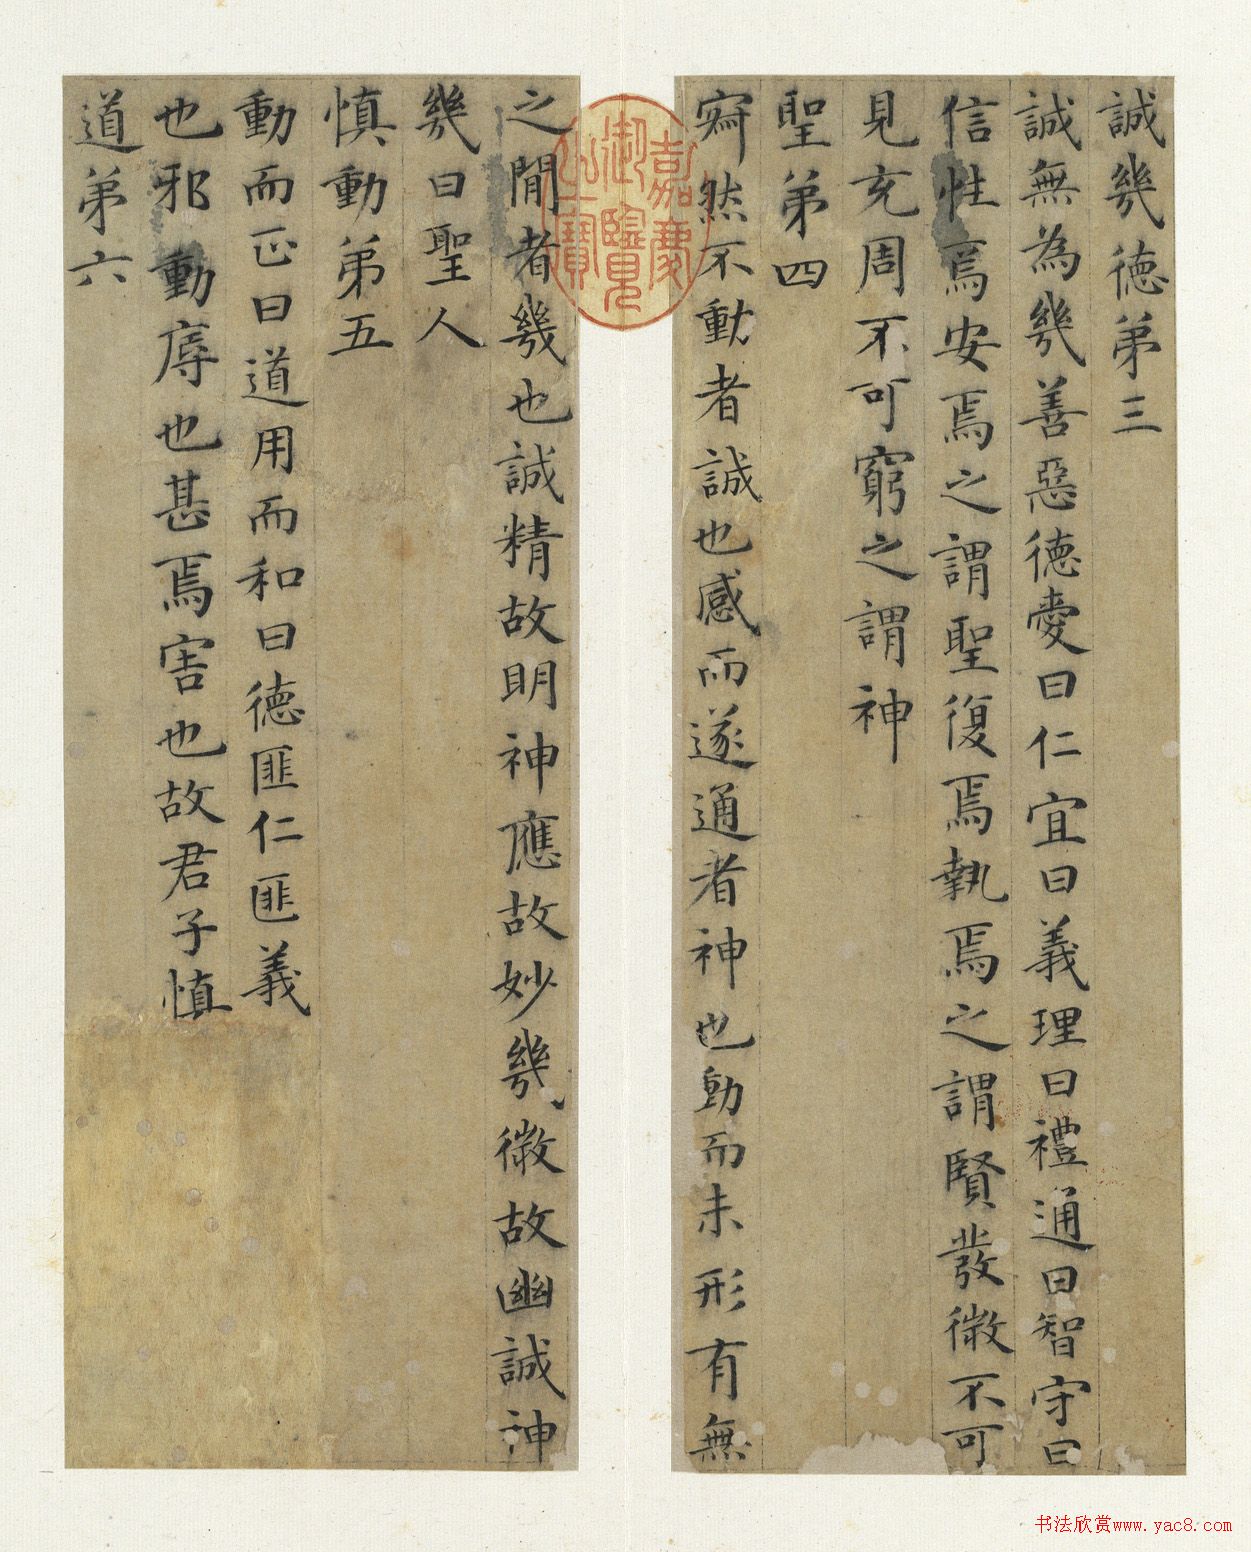 誠幾德第三
誠無為幾善惡德愛曰仁宜曰義理曰禮通曰智守曰
信性焉安焉之謂聖復焉執焉之謂賢發微不可
見充周不可窮之謂神
聖第四
寂然不動者誠也感而遂通者神也動而未形有無
之間者幾也誠精故明神應故妙幾微故幽誠神
幾曰聖人
慎動第五
動而正曰道用而和曰德匪仁匪義
也邪動辱也甚焉害也故君子慎
道第六
嘉慶御覽之寶
书法欣赏www.yac8.com